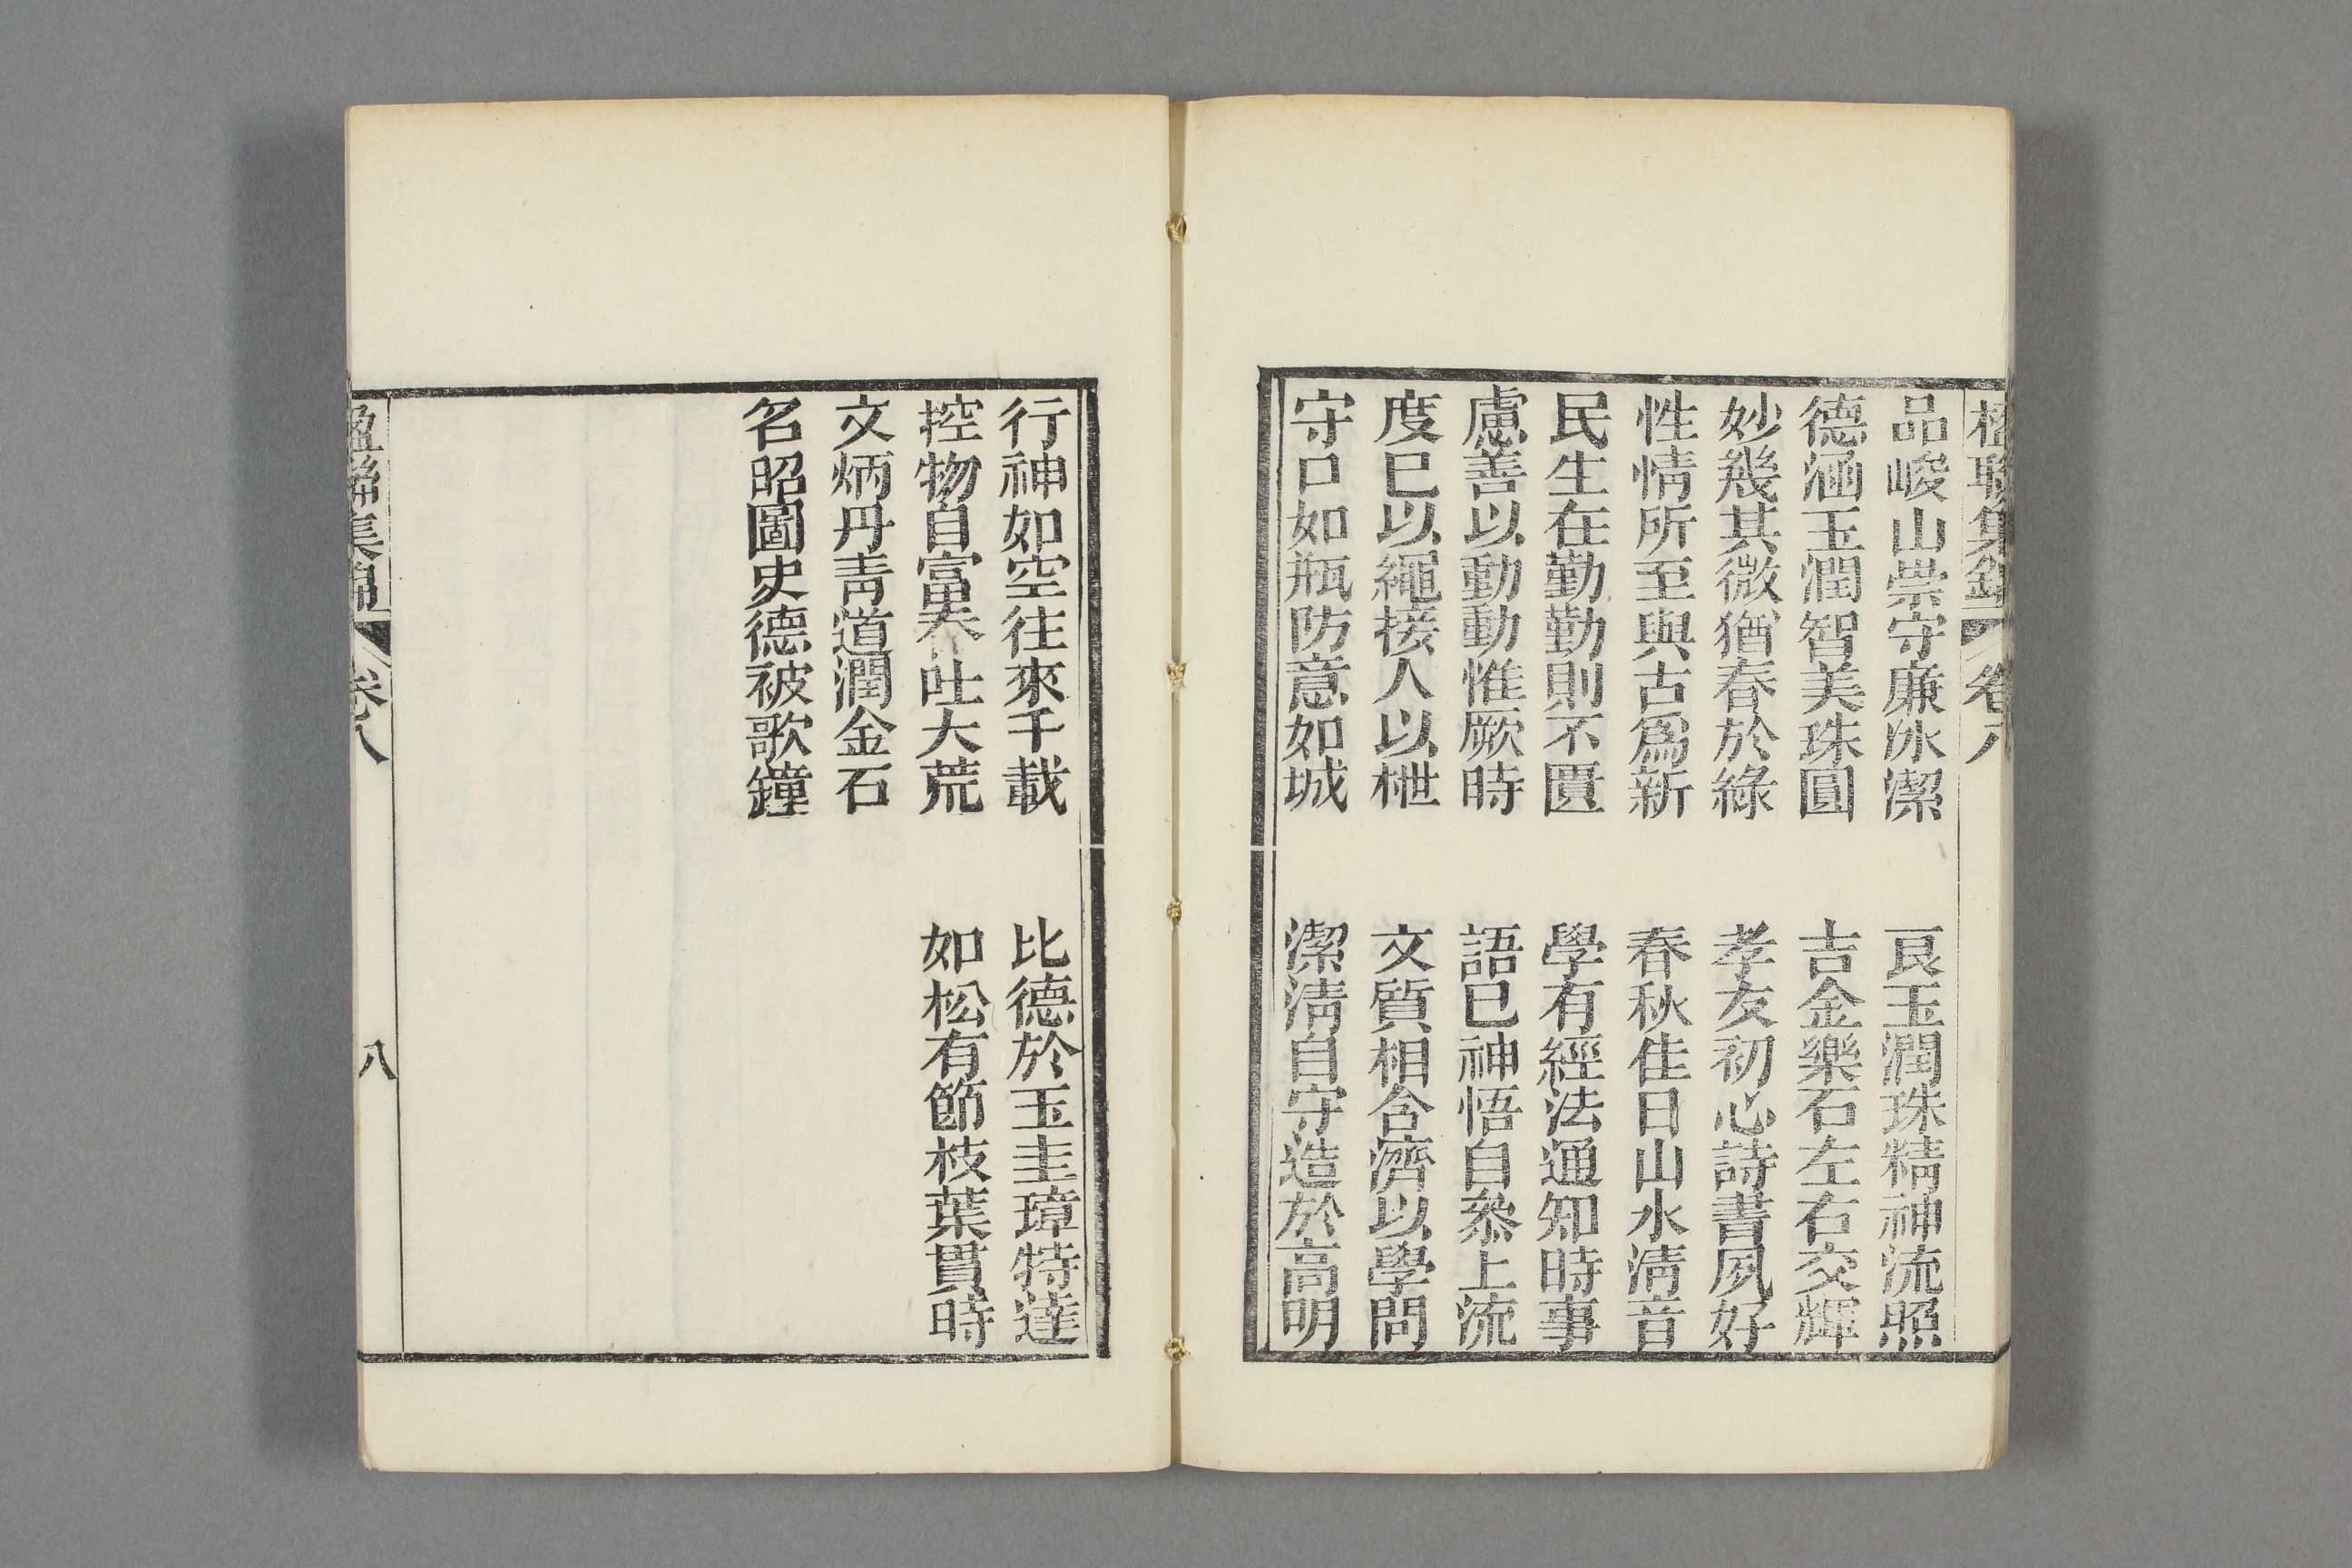 楹聯集錦 卷八
品峻山崇守廉冰潔
艮玉潤珠精神流照
德涵玉潤智美珠圓
吉金樂石左右交輝
妙幾其微猶春於綠
孝友初心詩書夙好
性情所至與古爲新
春秋佳日山水淸音
民生在勤勤則不匱
學有經法通知時事
慮善以動動惟厥時
語巳神悟自叅上流
度巳以繩接人以枻
文質相含濟以學問
守口如瓶防意如城
潔淸自守造於高明
行神如空往來千載
比德於玉圭璋特達
控物自富吳吐大荒
如松有節枝葉貫時
文炳丹靑道潤金石
名昭圖史德被歌鐘
卷八
八